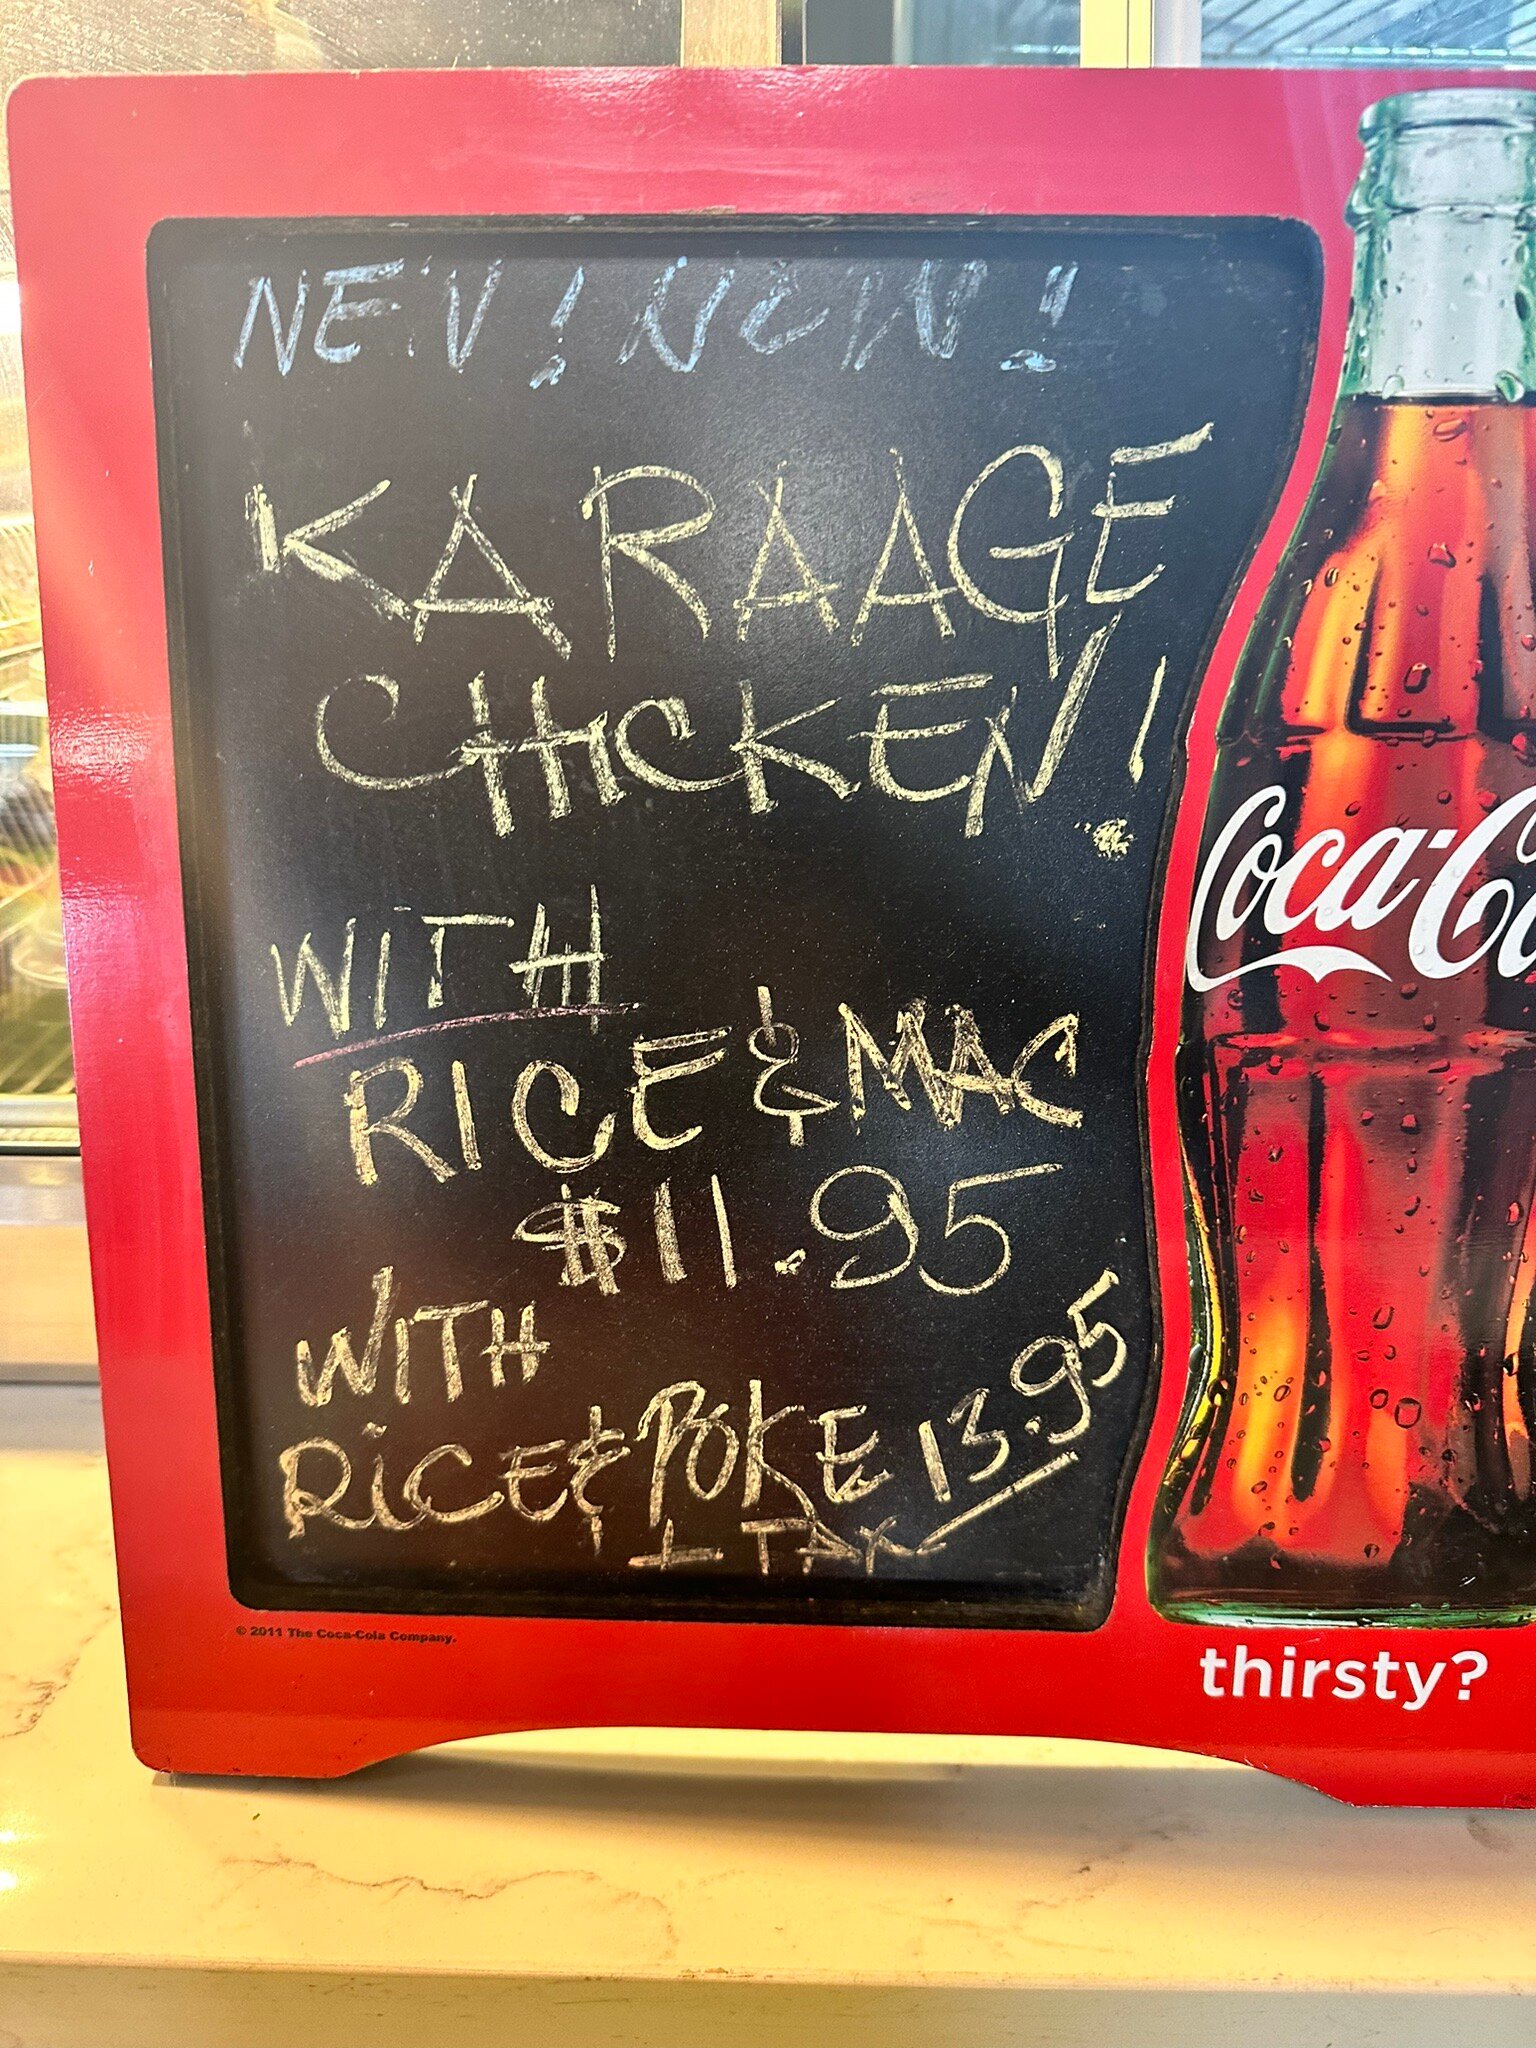 NEW! NEW!
KARAAGE
CHICKEN!
WITH
RICE & MAC
$11.95
WITH
RICE & POKE 13.95
+ TAX
Coca-Co
© 2011 The Coca-Cola Company.
thirsty?